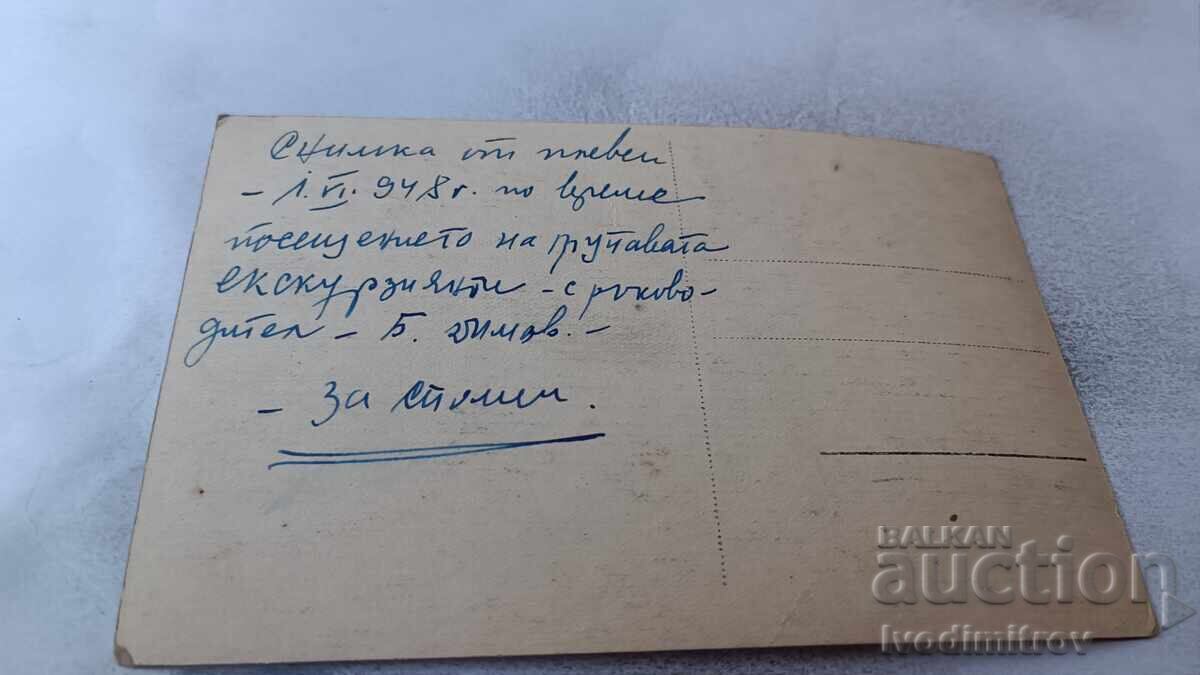 Снимка от Плевен
- 1. VI. 948 г. по време
посещението на групавата
екскурзиянти - с ръково-
дител - Б. Димов. -
- За спомен.
BALKAN
auction
Ivodimitrov